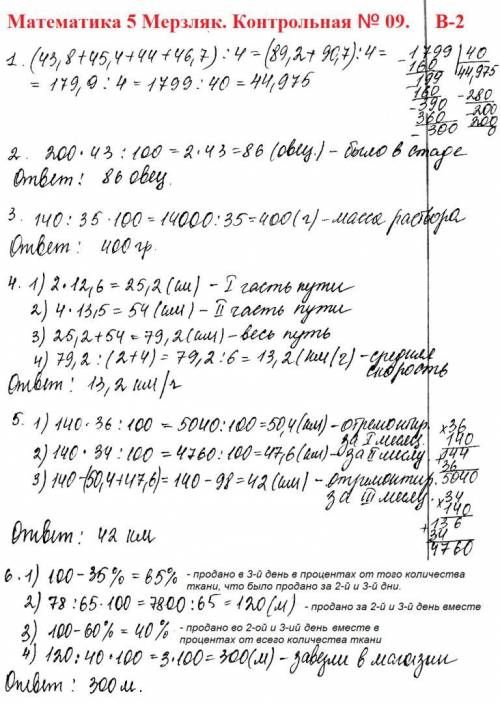 Математика 5 Мерзляк. Контрольная № 09. В-2
1. (43,8+45,4+44+46,7):4=(89,2+90,7):4=
=179,9:4=1799:40=44,975
1799 | 40
44,975
- 160
199
- 160
- 390
360
- 300
- 280
200
200
0
2. 200·43:100=2·43=86 (овец) – было в стаде
Ответ: 86 овец.
3. 140:35·100=14000:35=400(г) – масса раствора
Ответ: 400 гр.
4. 1) 2·12,6=25,2(км) – I часть пути
2) 4·13,5=54(км) – II часть пути
3) 25,2+54=79,2(км) – весь путь
4) 79,2:(2+4)=79,2:6=13,2(км/г) – средняя
скорость
Ответ: 13,2 км/г
5. 1) 140·36:100=5040:100=50,4(км) – отремонтир.
за I месяц.
2) 140·34:100=4760:100=47,6(км) – за II месяц
3) 140-(50,4+47,6)=140-98=42(км) – отремонтир.
за III месяц.
Ответ: 42 км
×36
140
+144
36
5040
×34
140
+136
34
4760
6. 1) 100-35%=65% - продано в 3-й день в процентах от того количества
ткани, что было продано за 2-й и 3-й дни.
2) 78:65·100=7800:65=120(м) - продано за 2-й и 3-й день вместе
3) 100-60%=40% - продано во 2-ой и 3-ий день вместе в
процентах от всего количества ткани
4) 120:40·100=3·100=300(м) – завезли в магазин
Ответ: 300м.